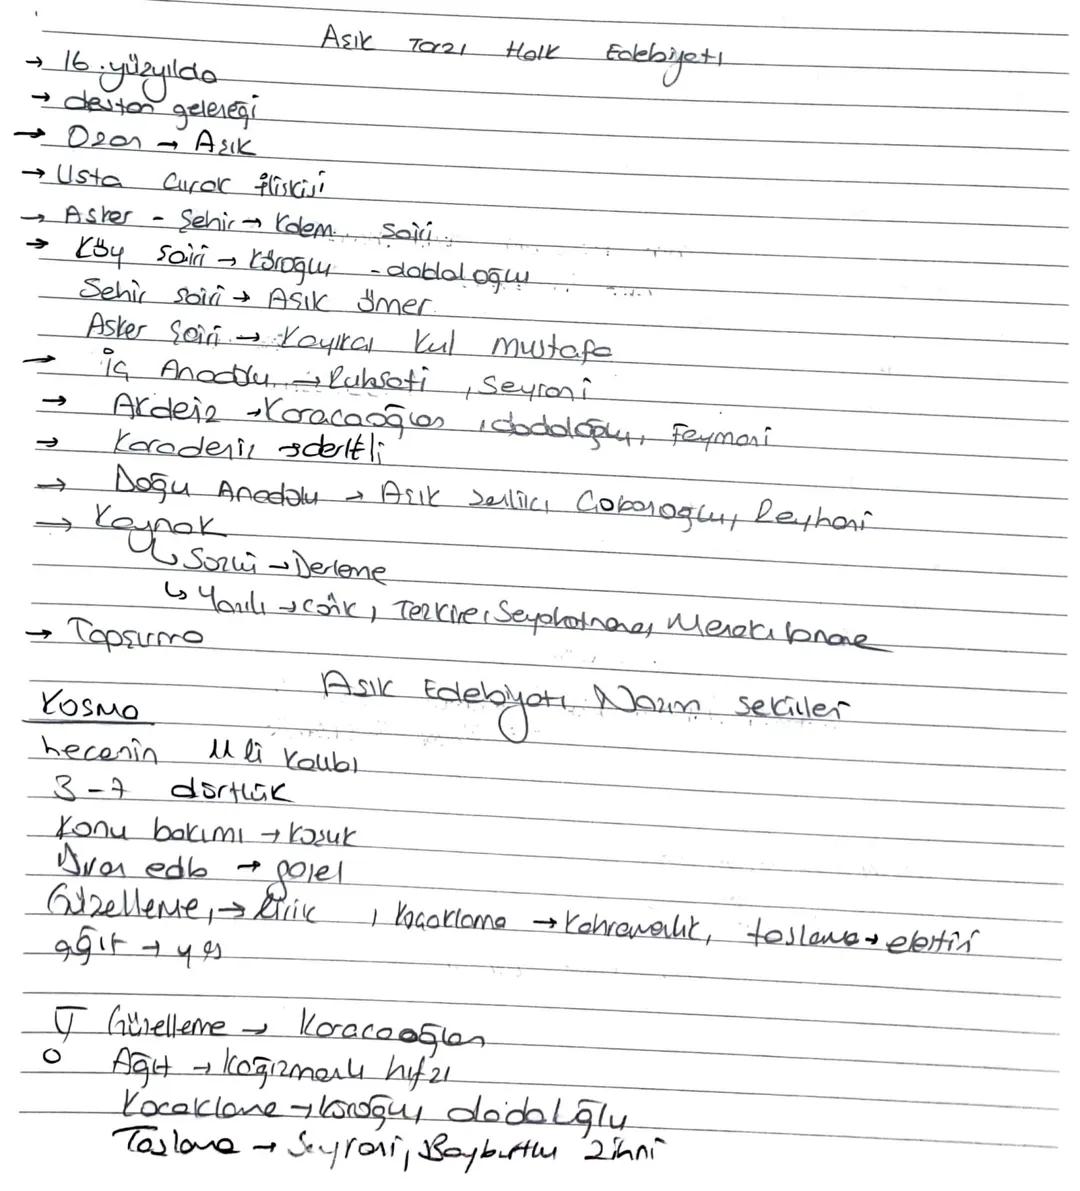 Aşık Tarzı Halk Edebiyatı
→ 16. yüzyılda
→ destan geleneği
→ Ozan → Aşık
→ Usta Çırak İlişkisi
→ Asker - Şehir → Kalem şairi
→ Köy şairi → Köroğlu - dadaloğlu
Şehir şairi → Aşık Ömer
Asker Şairi → Kayıkçı Kul Mustafa
→ İç Anadolu → Ruhsati, Seyrani
→ Akdeiz → Karacaoğlan, dadaloğlu, Feymani
→ Karadeniz → dertli
→ Doğu Anadolu → Aşık Şenlik, Çobanoğlu, Reyhani
→ Kaynak
↳ Sözlü → Derleme
↳ Yazılı → Cönk, Tezkire, Seyahatname, Menakıbname
→ Tapşırma
Aşık Edebiyatı Nazım şekilleri
KOŞMA
hecenin 11 li kalıbı
3-7 dörtlük
Konu bakımı → koşuk
Divan edb → gazel
Güzelleme, → lirik, koçaklama → Kahramanlık, taşlama → eleştiri
ağıt → yas
Güzelleme → Karacaoğlan
Ağıt → Kağızmanlı hıfzı
Koçaklama → köroğlu, dadaloğlu
Taşlama → Seyrani, Bayburtlu Zihni